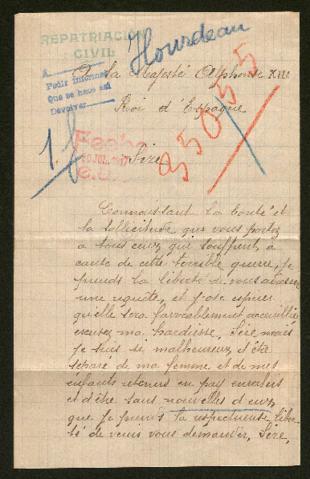 REPATRIACION
CIVIL
Hourdeau
A sa Majesté Alphonse XIII
A
Pedir informes
Que se hace así
Devolver
Roi d'Espagne
85055
Fecha
JUL. 1917
Sire,
Connaissant la bonté et
la sollicitude que vous portez
à tous ceux qui souffrent, à
cause de cette terrible guerre, je
prends la liberté de vous adresser
une requête, et j'ose espérer
qu'elle sera favorablement accueillie
excusez ma hardiesse, Sire, mais
je suis si malheureux d'être
séparé de ma femme et de mes
enfants retenus en pays envahis
et d'être sans nouvelles d'eux,
que je prends la respectueuse liber-
té de venir vous demander, Sire,